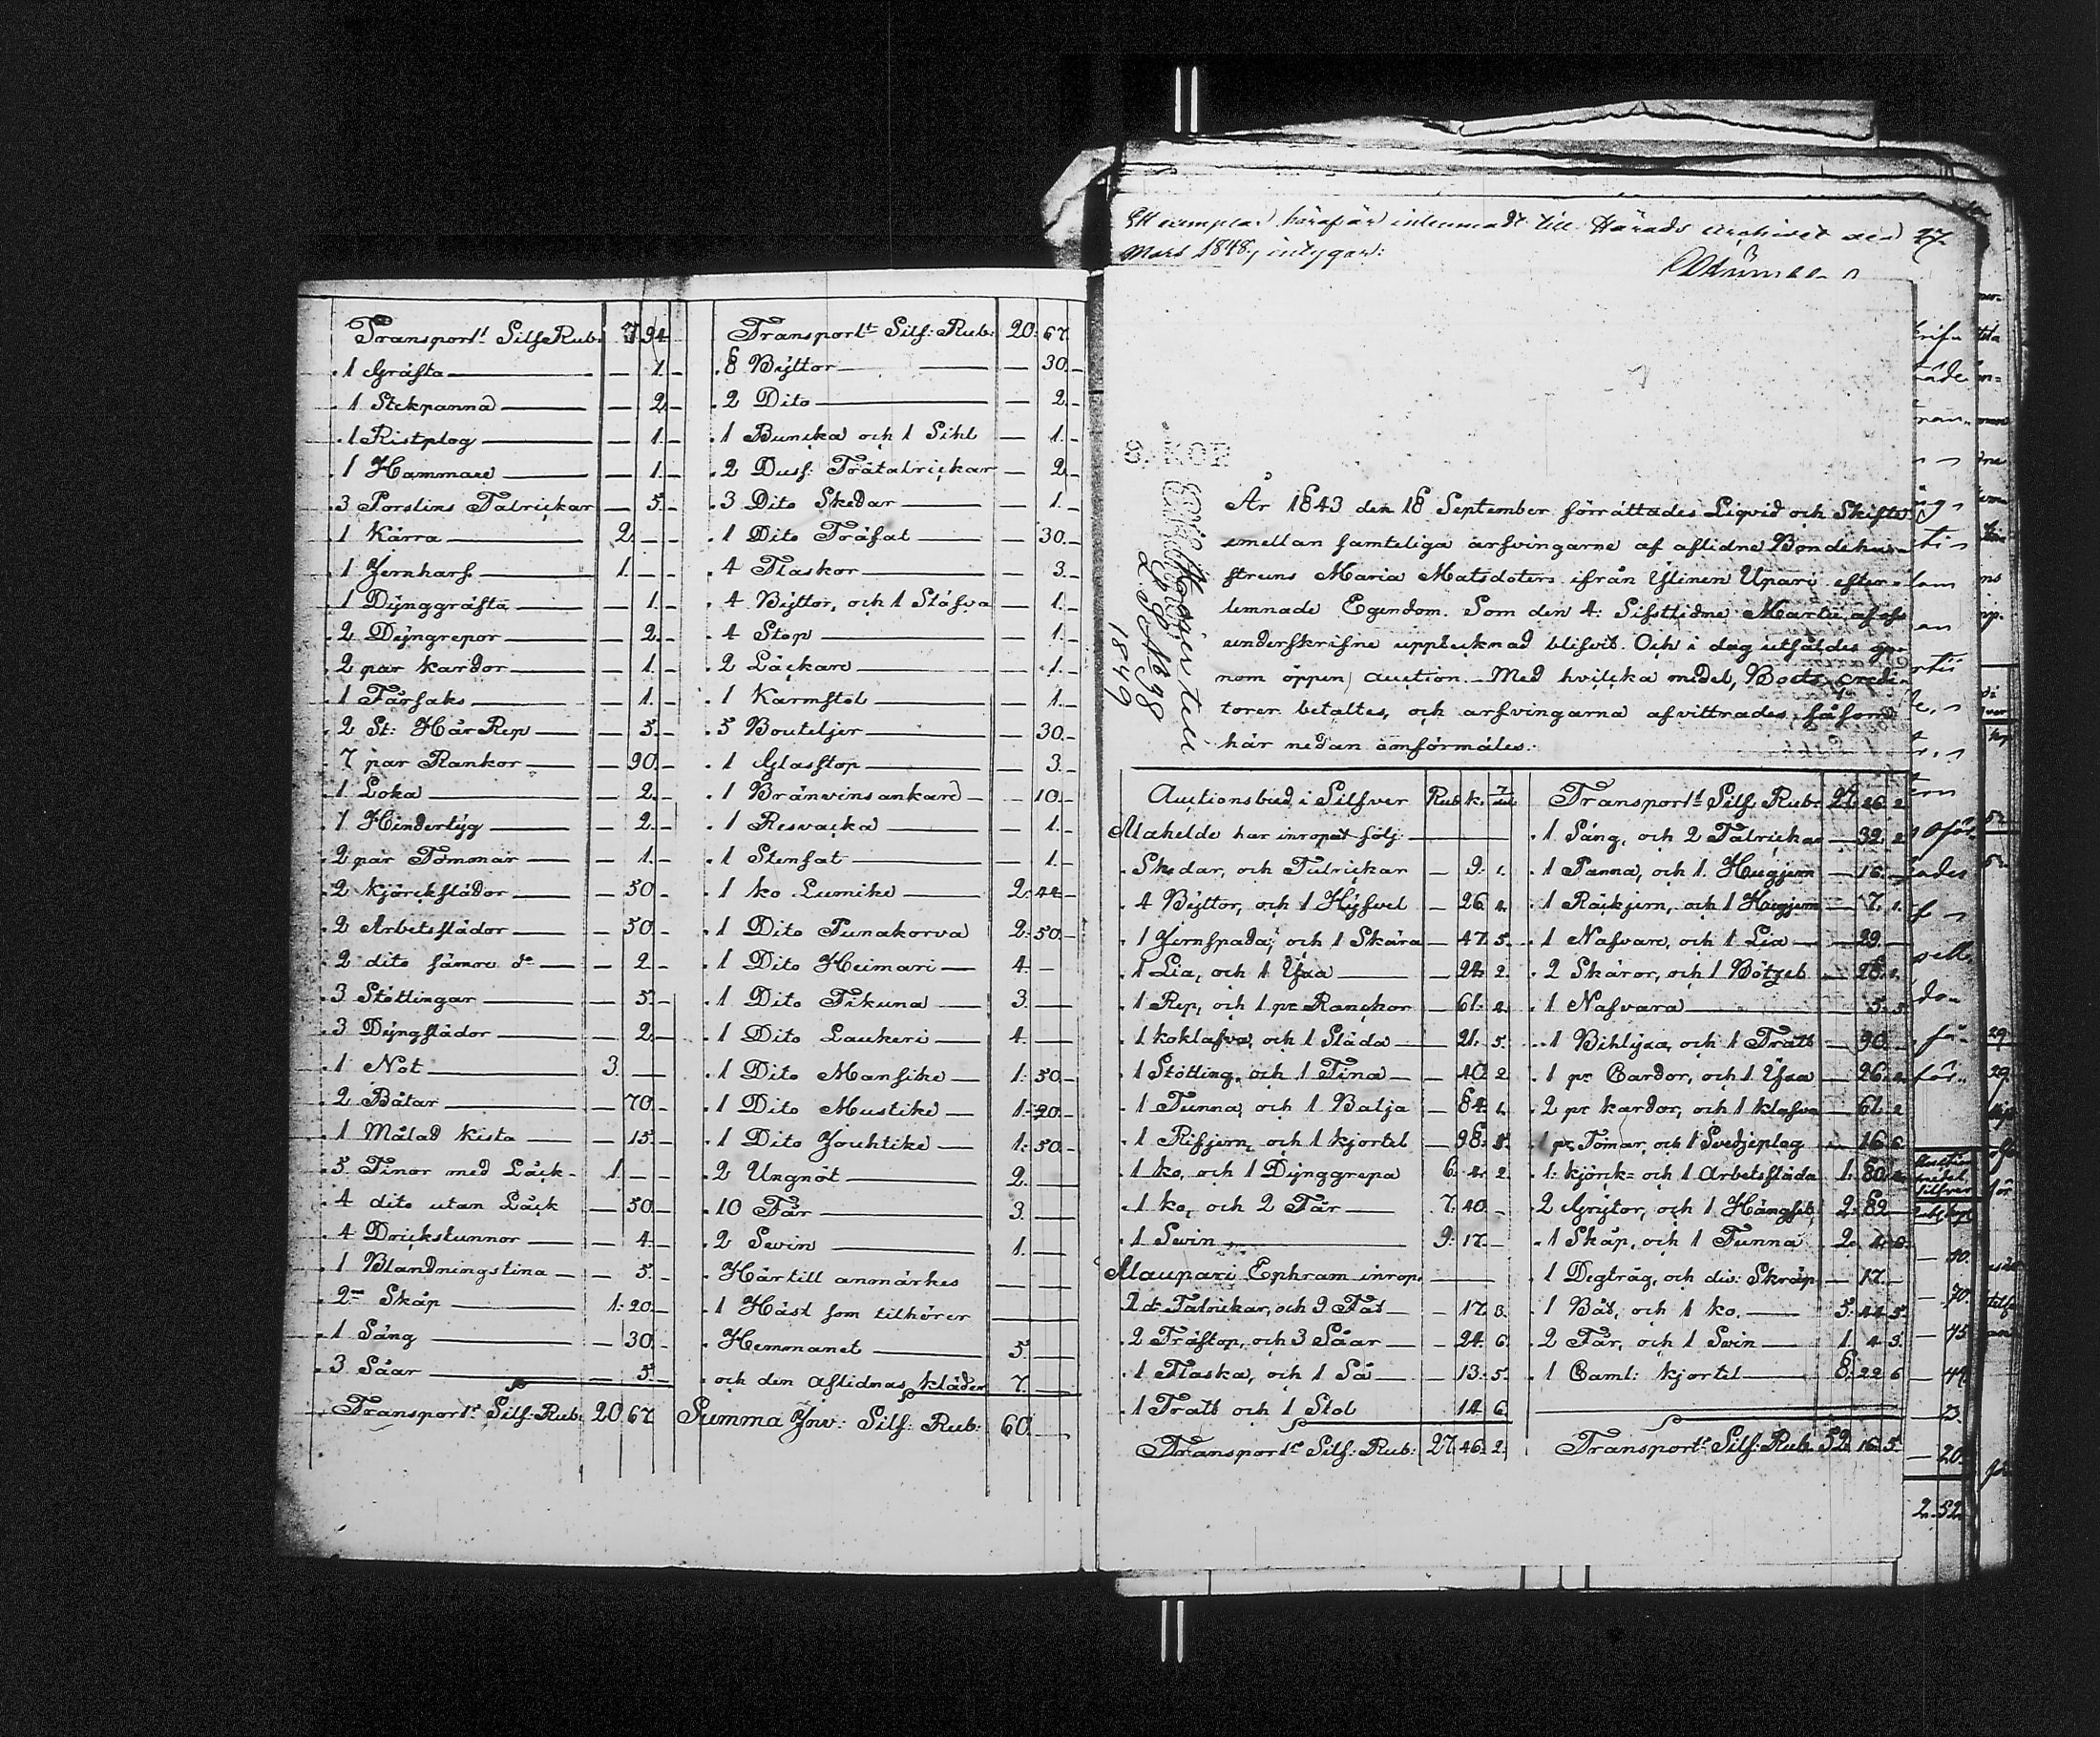 Transport: Silf Rub: 7 94
. 1 Gräfta — 1. -
. 1 Stekpanna — 2. -
. 1 Ristplog — 1. -
. 1 Hammare — 1. -
. 3 Porslins Talrickar — 5. -
. 1 Kärra 2. — -
. 1 Jernharf 1. — -
. 1 Dÿnggräfta — 1. -
. 2 Dÿngrepor — 2. -
. 2 par kardor — 1. -
. 1 Fårsaks — 1. -
. 2 St: Hår Rep — 5. -
. 7 par Rankor — 90. -
. 1 Loka — 2. -
. 1 Hindertÿg — 2. -
. 2 par Tömmar — 1. -
. 2 kjörckslädor — 50 -
. 2 Arbetslädor — 50. -
. 2 dito sämre do — 2. -
. 3 Stöttingar — 5. -
. 3 Dÿngslädor — 2. -
. 1 Not 3. —
. 2 Båtar — 70. -
. 1 Målad kista — 15. -
. 5 Tinor med Läck 1. — -
. 4 dito utan Läck — 50. -
. 4 Drickstunnor — 4. -
. 1 Blandningstina — 5. -
. 2ne Skåp 1. 20. -
. 1 Säng — 30. -
. 3 Såar — 5. -
Transport: Silf: Rub: 20 67
Transport: Silf: Rub: 20. 67
. 8 Bÿttor — 30. -
. 2 Dito — 2. -
. 1 Buncka och 1 Sihl — 1. -
. 2 Dus: Trätalrickar — 2.
. 3 Dito Skedar — 1. -
. 1 Dito Träfat — 30. -
. 4 Flaskor — 3. -
. 4 Bÿttor, och 1 Slåfva — 1. -
. 4 Stop — 1. -
. 2 Läckare — 1. -
. 1 Karmstol — 1. -
. 5 Bouteljer — 30. -
. 1 Glasstop — 3. -
. 1 Bränvins ankare — 10. -
. 1 Resvacka — 1. -
. 1 Stenfat — 1. -
. 1 ko Lumike 2. 44 -
. 1 Dito Punakorva 2. 50. -
. 1 Dito Heimari 4 -
. 1 Dito Tikuna 3. —
. 1 Dito Laukeri 4. —
. 1 Dito Mansike 1. 50 -
. 1 Dito Mustike 1. 20. -
. 1 Dito Jouhtike 1. 50. -
. 2 Ungnöt 2. —
. 10 Får 3. —
. 2 Svin 1. —
. Härtill anmärkes —
. 1 Häst som tilhörer —
. Hemmanet 5. —
. och den aflidnas kläder 7. —
Summa Inv: Silf: Rub: 60. —
Ett exemplar härafär inlemnadt till Härads Archivet den 27
Mars 1848, intygar:
8. KOP
1849
År 1843 den 18 September förrättades Liqvid och Skifte
emellan samteliga arfvingarne af aflidne Bondehus-
struns Maria Matsdoters ifrån Ylinen Upari efter-
lemnade Egendom. Som den 4: Sistlidne Martii af
underskrifne uppteknad blifvit. Och i dag utfäldes ge-
nom öppen auction. Med hvilcka medel, Bo credi-
torer betaltes, och arfvingarna afvittrades, såsom
här nedan omförmäles.
Auctionsbud i Silfver Rub k.
Alahelde har inropat följ:
. Skedar, och Talrickar — 9. 1.
. 4 Bÿttor, och 1 Hÿfvel — 26. 4.
. 1 Jernspada, och 1 Skära — 47. 5.
. 1 Lia, och 1 Yxa — 24. 2.
. 1 Rep, och 1 pr Ranckor — 61. 2.
. 1 koklafva, och 1 Släda — 21. 5.
. 1 Stötting, och 1 Tina — 40. 2
. 1 Tunna, och 1 Balja — 84. 1.
. 1 Risjern, och 1 kjortel — 98.
. 1 ko, och 1 Dÿnggrepa 6. 4. 2
. 1 ko, och 2 Får 7. 40. -
. 1 Svin 9. 17. -
Alaupari Ephram inrop.
2 dr Talrickar, och 9 Fat — 17. 3.
. 2 Trästop, och 3 Såar — 24. 6.
. 1 Flaska, och 1 Så — 13. 5.
. 1 Tratt och 1 Stol 14 6.
Transport: Silf: Rub: 27. 46. 2.
Transport: Silf. Rub: 27. 26. 2
. 1 Säng, och 2 Talrickar — 32. 2
. 1 Panna, och 1 Hugjern — 16. -
. 1 Räckjern, och 1 Hugjern — 7. 1.
. 1 Nafvare, och 1 Lia — 29. —
. 2 Skäror, och 1 Bötzel — 28. 1.
. 1 Nafvara — 5. 5.
. 1 Bihlÿxa, och 1 Tratt — 90. —
. 1 pr Cardor, och 1 Yxa — 26. 4.
. 2 pr kardor, och 1 klafva — 61. 2
. 1 pr Tömar, och 1 Svedjeplog — 16 6
. 1. kjörck= och 1 Arbetsläda 1. 80. 4.
. 2 Grÿtor, och 1 Hängsel 2. 82 —
. 1 Skåp, och 1 Tunna 2. 4. 6.
. 1 Degtråg, och div: Skräp — 17. -
. 1 Båt, och 1 ko. 5. 44. 5.
. 2 Får, och 1 Svin 1. 4 3.
. 1 Caml: kjortel 8. 22 6
Transport: Silf: Rub. 52. 16. 5.
— 70.
— 45
— 20.
2. 52